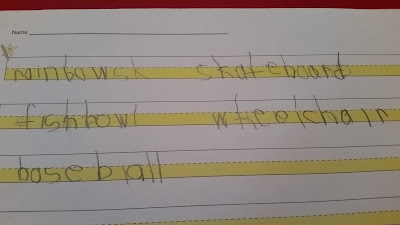 Name
rainbowsk skateboard
fishbowl wheelchair
baseball